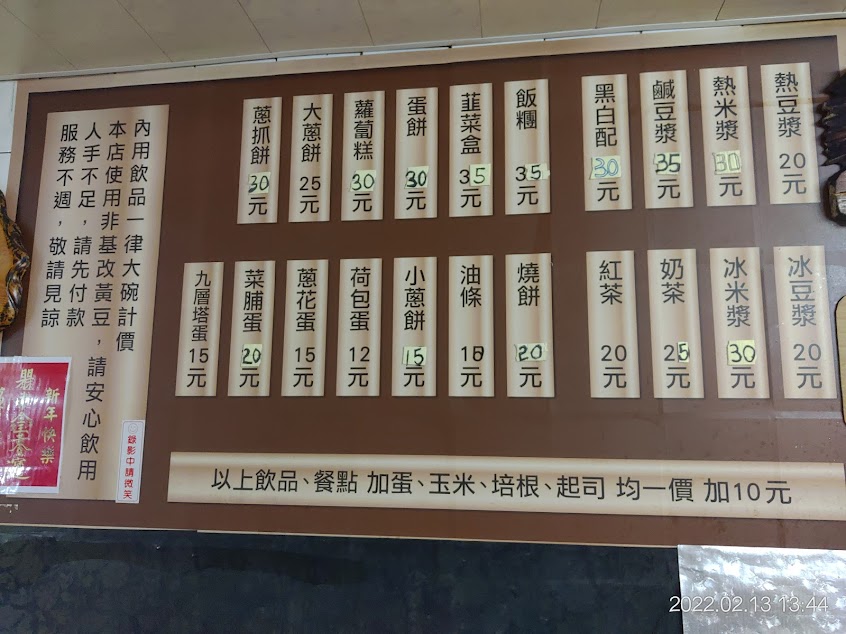 熱豆漿 20元
熱米漿 30元
鹹豆漿 35元
黑白配 30元
飯糰 35元
韭菜盒 35元
蛋餅 30元
蘿蔔糕 30元
大蔥餅 25元
蔥抓餅 30元
冰豆漿 20元
冰米漿 30元
奶茶 25元
紅茶 20元
燒餅 20元
油條 元
小蔥餅 15元
荷包蛋 12元
蔥花蛋 15元
菜脯蛋 20元
九層塔蛋 15元
以上飲品、餐點 加蛋、玉米、培根、起司 均一價 加10元
內用飲品一律大碗計價
本店使用非基改黃豆，請安心飲用
人手不足，請先付款
服務不週，敬請見諒
錄影中請微笑
新年快樂
2022.02.13 13:44